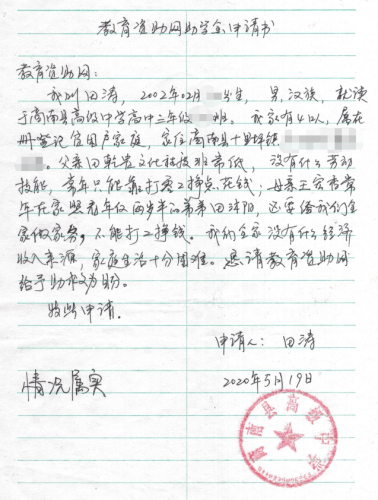 教育资助网助学金申请书
教育资助网：
我叫田涛，2002年02月 出生，男，汉族，就读
于商南县高级中学高中三年级 班。我家有4口人，属在
册登记贫困户家庭，家住商南县十里坪镇
。父亲田乾贵文化程度非常低，没有什么劳动
技能，常年只能靠打零工挣点花钱；母亲王会香常
年在家照看年仅两岁半的弟弟田 阳，还要给我们全
家做家务，不能打工挣钱。我们全家没有什么经济
收入来源，家庭生活十分困难。恳请教育资助网
给予助 为盼。
特此申请。
申请人：田涛
情况属实
2020年5月19日
商南县高级中学